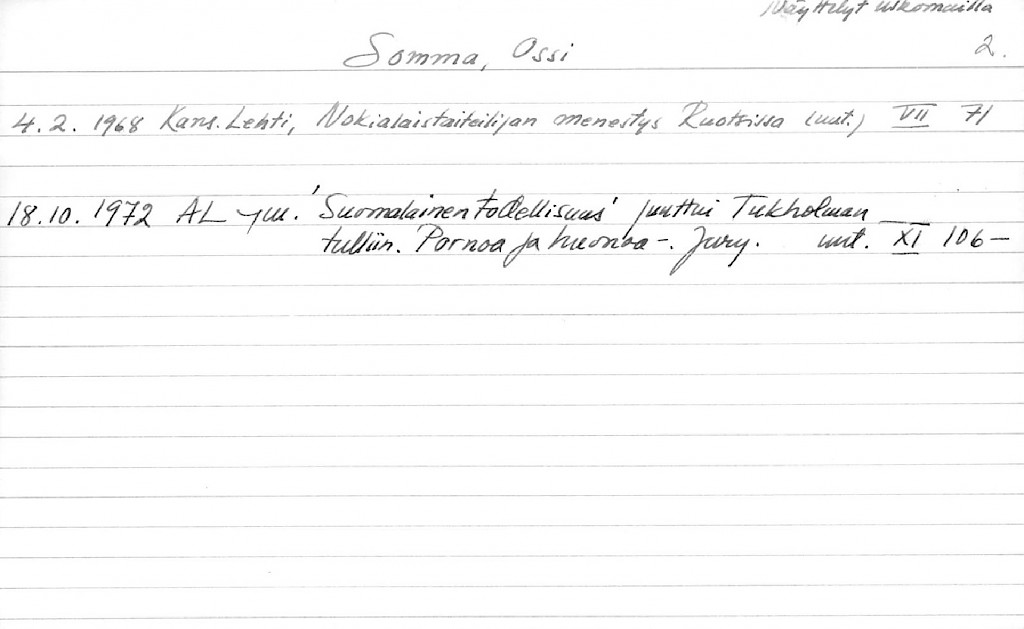 Näyttelyt ulkomailla
Somma, Ossi 2.
4.2. 1968 Kans. Lehti, Nokialaistaiteilijan menestys Ruotsissa (uut.) VII 71
18.10. 1972 AL ym. 'Suomalainen todellisuus' juuttui Tukholman
tulliin. Pornoa ja huonoa -. Jury. uut. XI 106-